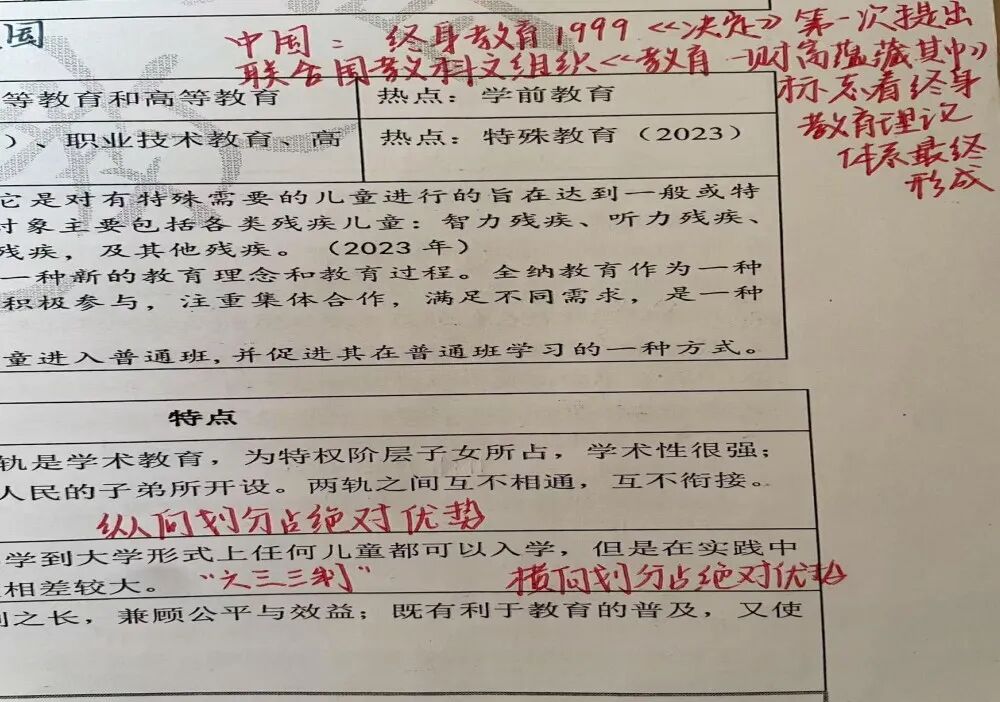 国
中国：终身教育1999《决定》第一次提出
联合国教科文组织《教育—财富蕴藏其中》
标志着终身
教育理论
体系最终
形成
等教育和高等教育 热点：学前教育
）、职业技术教育、高 热点：特殊教育（2023）
它是对有特殊需要的儿童进行的旨在达到一般或特
对象主要包括各类残疾儿童：智力残疾、听力残疾、
残疾，及其他残疾。（2023 年）
一种新的教育理念和教育过程。全纳教育作为一种
积极参与，注重集体合作，满足不同需求，是一种
童进入普通班,并促进其在普通班学习的一种方式。
特点
轨是学术教育，为特权阶层子女所占，学术性很强；
人民的子弟所开设。两轨之间互不相通，互不衔接。
纵向划分占绝对优势
学到大学形式上任何儿童都可以入学，但是在实践中
相差较大。 “六三三制” 横向划分占绝对优势
之长，兼顾公平与效益；既有利于教育的普及，又使